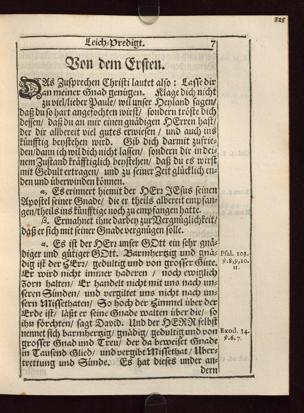 825
Leich-Predigt. 7
Von dem Ersten.
DAs Zusprechen Christi lautet also: Lasse dir
an meiner Gnad genügen. Klage dich nicht
zu viel/ lieber Paule/ wil unser Heyland sagen/
daß du so hart angefochten wirst/ sondern tröste dich
dessen/ daß du an mir einen gnädigen HErren hast/
der dir allbereit viel gutes erwiesen/ und auch ins
künfftig beystehen wird. Gib dich darmit zufrie-
den/ dann ich wil dich nicht lassen/ sondern dir in dei-
nem Zustand kräfftiglich beystehen/ daß du es wirst
mit Gedult ertragen/ und zu seiner Zeit glücklich en-
den und überwinden können.
Es erinnert hiemit der HErr JESus seinen
Apostel seiner Gnade/ die er theils albereit empfan-
gen/ theils ins künfftige noch zu empfangen hatte.
Ermahnet ihn darbey zur Vergnüglichkeit/
daß er sich mit seiner Gnade vergnügen solle.
Es ist der HErr unser GOtt ein sehr gnä-
diger und gütiger GOtt. Barmhertzig und gnä-
dig ist der HErr/ gedultig und von grosser Güte.
Er wird nicht immer hadern/ noch ewiglich
Zorn halten/ Er handelt nicht mit uns nach un-
seren Sünden/ und vergiltet uns nicht nach un-
sern Missethaten/ So hoch der Himmel über der
Erde ist/ läßt er seine Gnade walten über die/ so
ihn förchten/ sagt David. Und der HERR selbst
nennet sich barmhertzig/ gnädig/ gedultig und von
grosser Gnad und Treu/ der da beweiset Gnade
in Tausend Glied/ und vergibt Missethat/ Uber-
trettung und Sünde. Es hat dieses under an-
dern
Psal. 103.
v. 8. 9. 10.
11.
Exod. 34.
v. 6. 7.